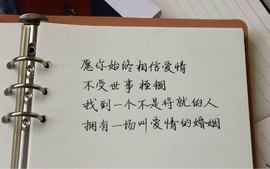 愿你始终相信爱情
不受世事桎梏
找到一个不是将就的人
拥有一场叫爱情的婚姻